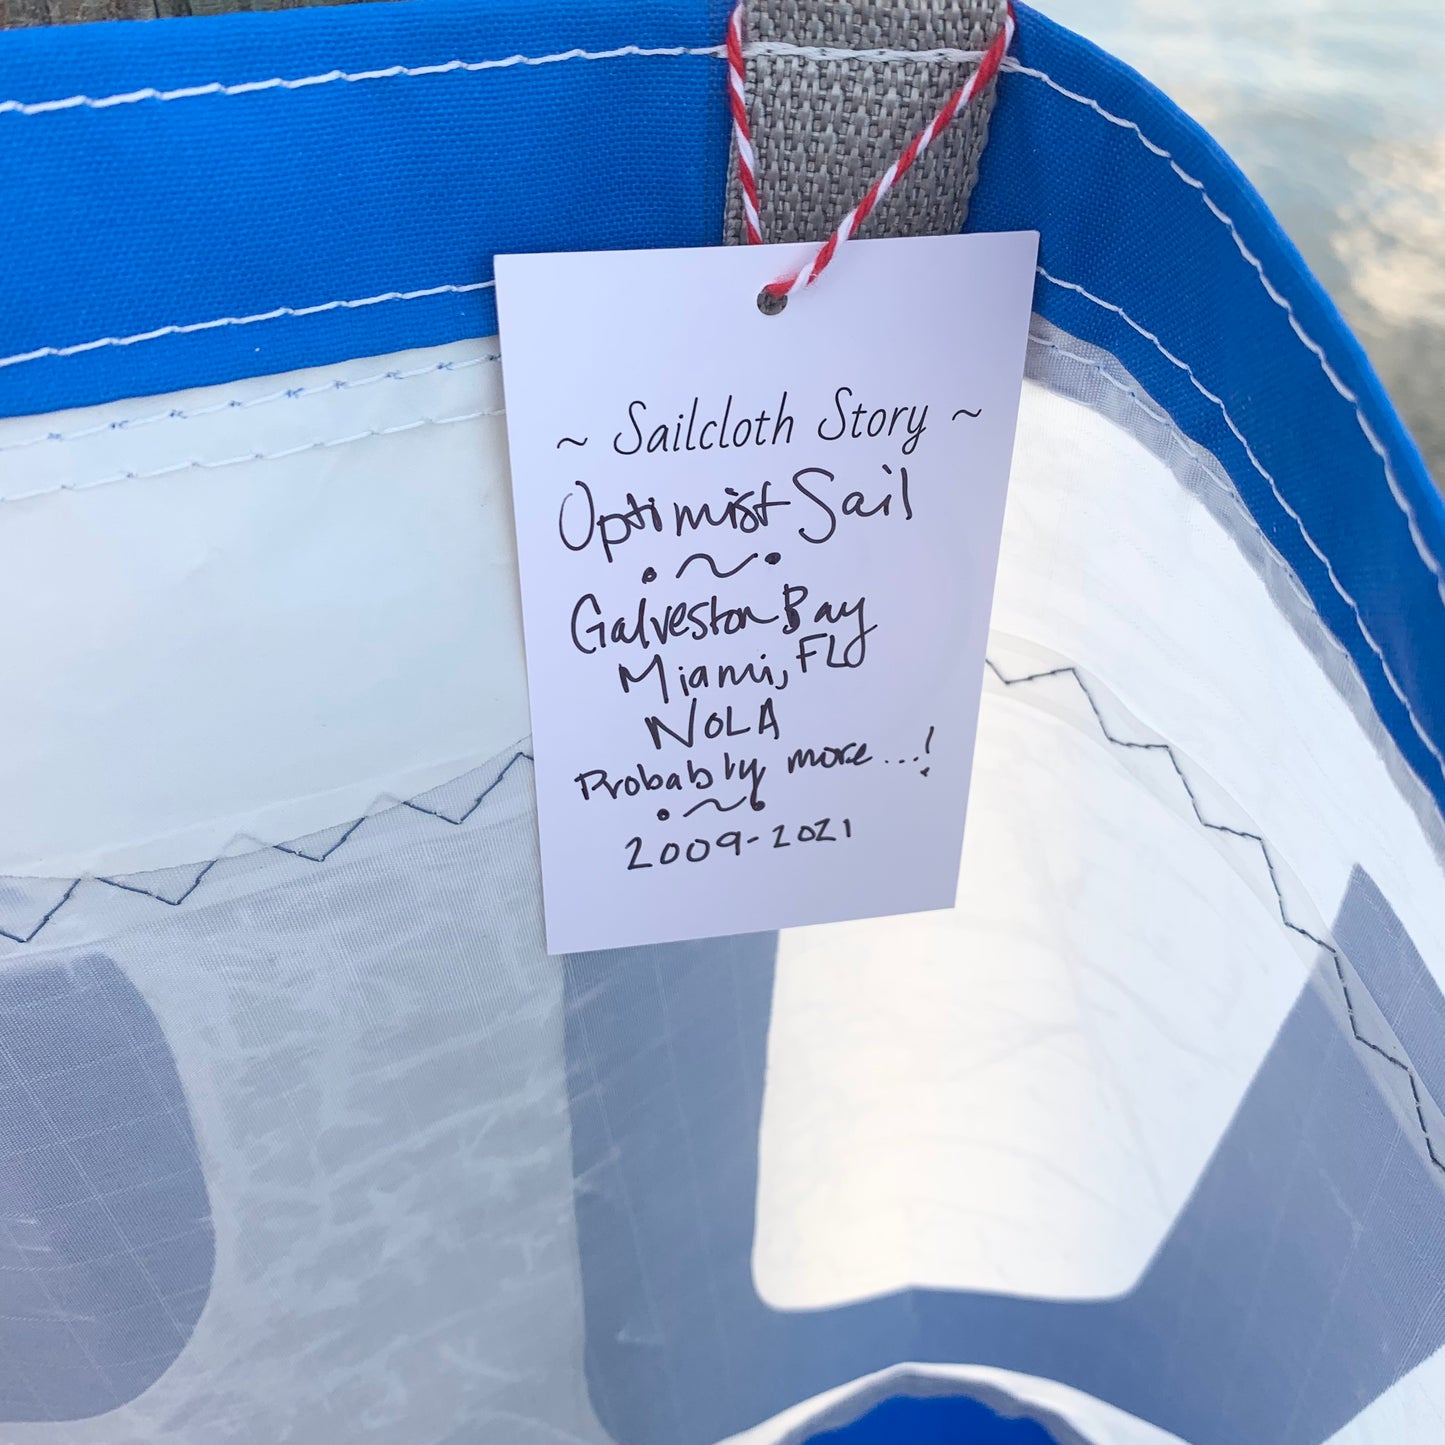 ~ Sailcloth Story ~
Optimist Sail
Galveston Bay
Miami, FL
NOLA
Probably more...!
2009-2021